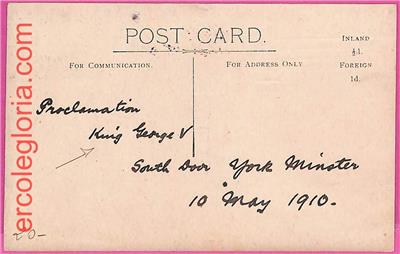 POST CARD.
INLAND
½d.
FOREIGN
1d.
FOR COMMUNICATION.
FOR ADDRESS ONLY
Proclamation
King George V
South Door York Minster
10 May 1910.
20-
ercolegloria.com